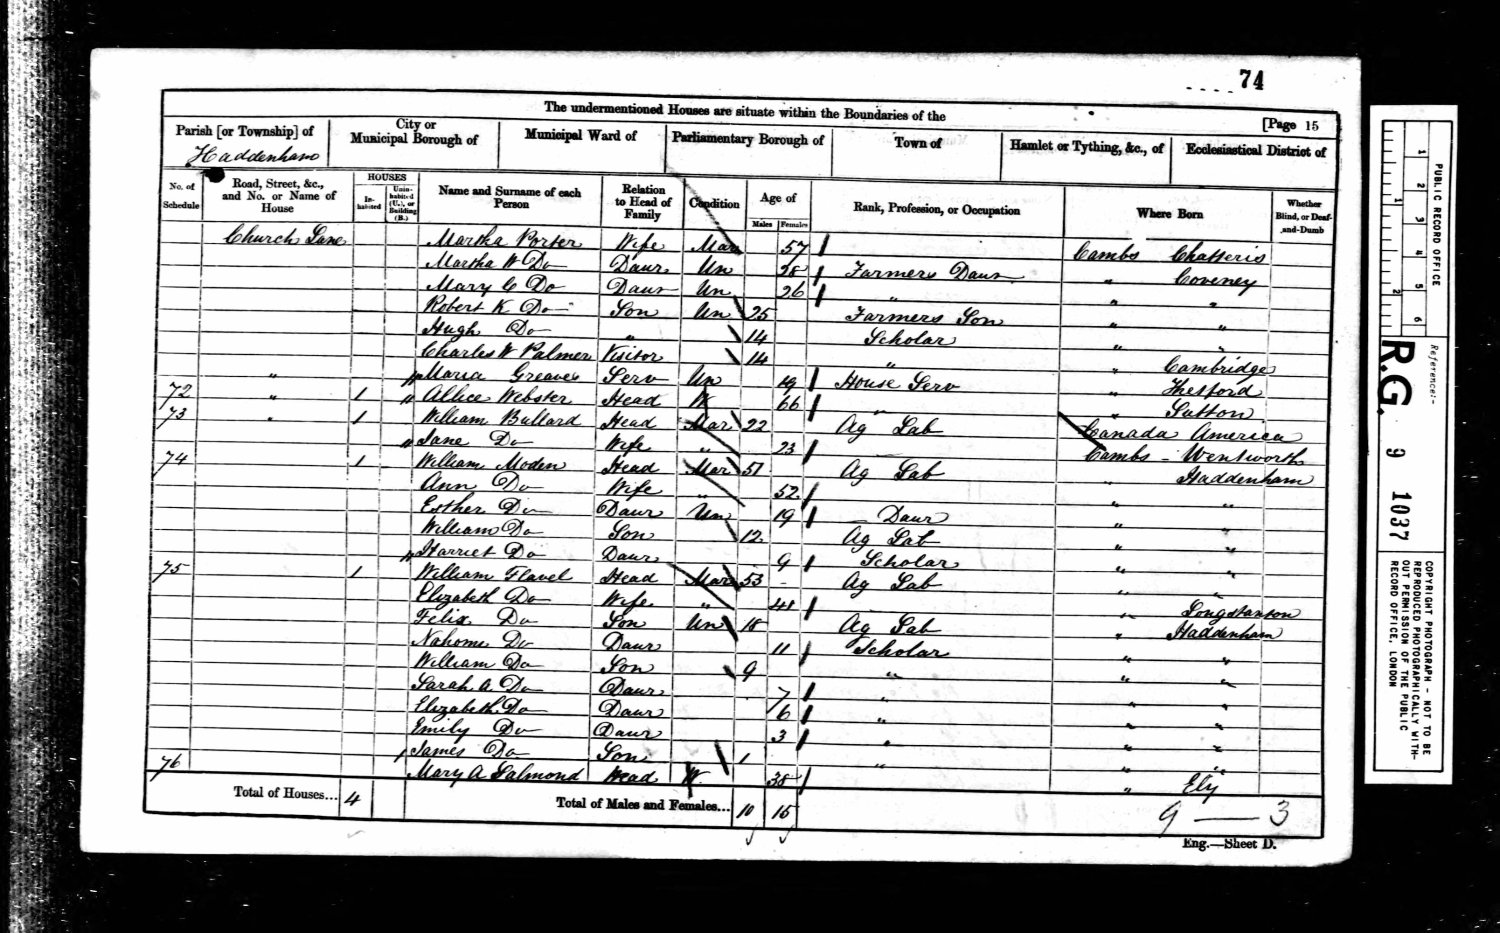 74
The undermentioned Houses are situate within the Boundaries of the
[Page 15
Parish [or Township] of
Haddenham
City or Municipal Borough of
Municipal Ward of
Parliamentary Borough of
Town of
Hamlet or Tything, &c., of
Ecclesiastical District of
No. of Schedule
Road, Street, &c., and No. or Name of House
HOUSES
In-habited
Unin-habited (U.), or Building (B.)
Name and Surname of each Person
Relation to Head of Family
Condition
Age of
Males
Females
Rank, Profession, or Occupation
Where Born
Whether Blind, or Deaf-and-Dumb
Church Lane Martha Porter Wife Mar 57 Cambs Chatteris
Martha W Do Daur Un 28 Farmers Daur " Coveney
Mary C Do Daur Un 26 " " "
Robert K Do Son Un 25 Farmers Son " "
Hugh Do " 14 Scholar " "
Charles W Palmer Visitor 14 " " Cambridge
" Maria Greaves Serv Un 19 House Serv " Thetford
72 " 1 Allice Webster Head W 66 " " Sutton
73 " 1 William Bullard Head Mar 22 Ag Lab Canada America
Jane Do Wife " 23 Cambs - Wentworth
74 1 William Moden Head Mar 51 Ag Lab " Haddenham
Ann Do Wife " 52 " "
Esther Do Daur Un 19 Daur " "
William Do Son 12 Ag Lab " "
Harriet Do Daur 9 Scholar " "
75 1 William Flavel Head Mar 53 Ag Lab " "
Elizabeth Do Wife " 41 " Longstanton
Felix Do Son Un 18 Ag Lab " Haddenham
Nahome Do Daur 11 Scholar " "
William Do Son 9 " " "
Sarah A Do Daur 7 " " "
Elizabeth Do Daur 6 " " "
Emily Do Daur 3 " " "
James Do Son 1 " " "
76 Mary A Salmond Head W 38 " Ely
Total of Houses... 4
Total of Males and Females... 10 15
9 — 3
Eng.—Sheet D.
PUBLIC RECORD OFFICE
1 2 3 4 5 6
1 2
Reference:-
R.G. 9 1037
COPYRIGHT PHOTOGRAPH - NOT TO BE REPRODUCED PHOTOGRAPHICALLY WITH-OUT PERMISSION OF THE PUBLIC RECORD OFFICE, LONDON